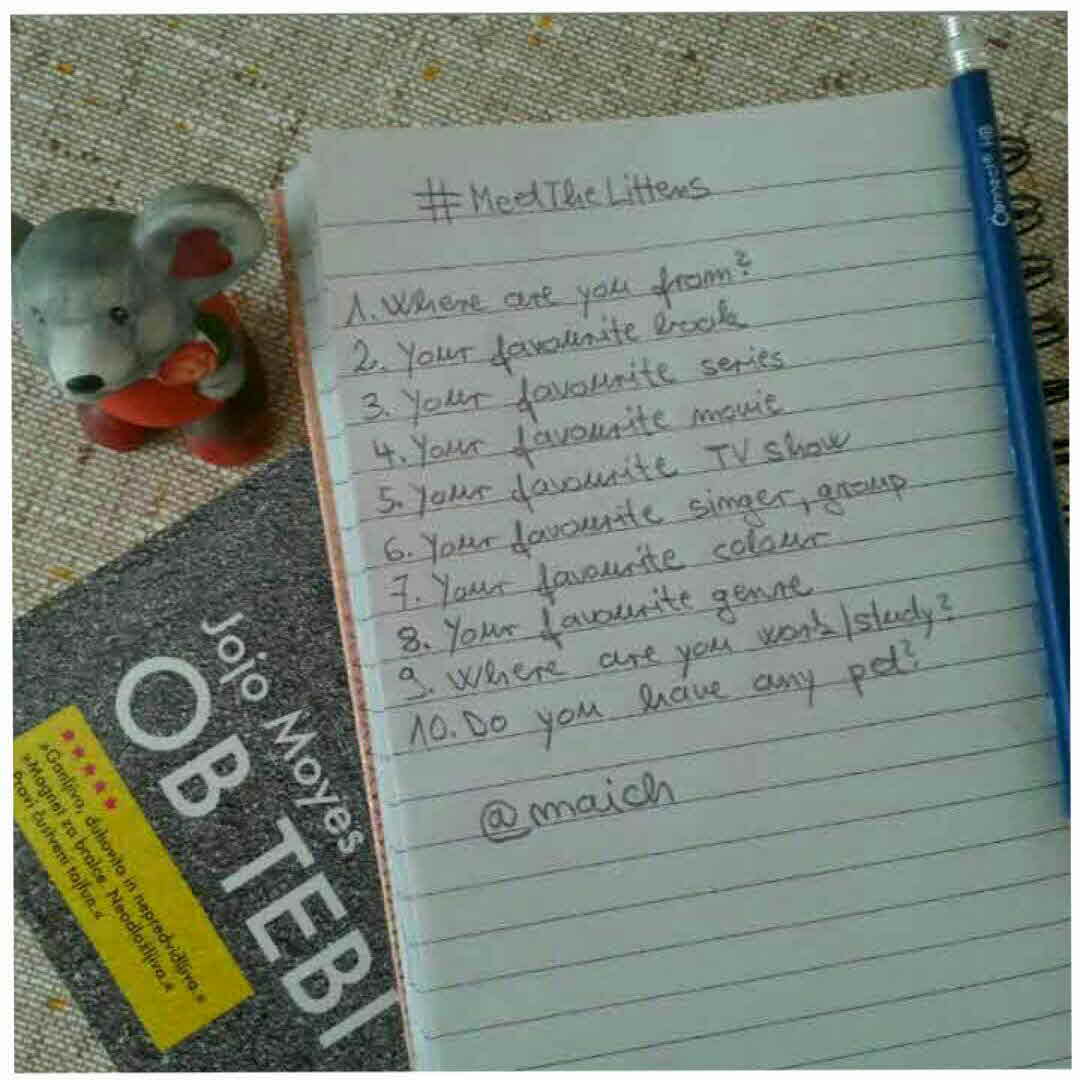 #MeetTheLittens
1. Where are you from?
2. Your favourite book
3. Your favourite series
4. Your favourite movie
5. Your favourite TV show
6. Your favourite singer, group
7. Your favourite colour
8. Your favourite genre
9. Where are you work/study?
10. Do you have any pet?
@maich
Jojo Moyes
OB TEBI
»Ganljiva, duhovita in nepredvidljiva.«
»Magnet za bralce. Neodložljiva.«
Pravi čustveni tajfun.«
HB